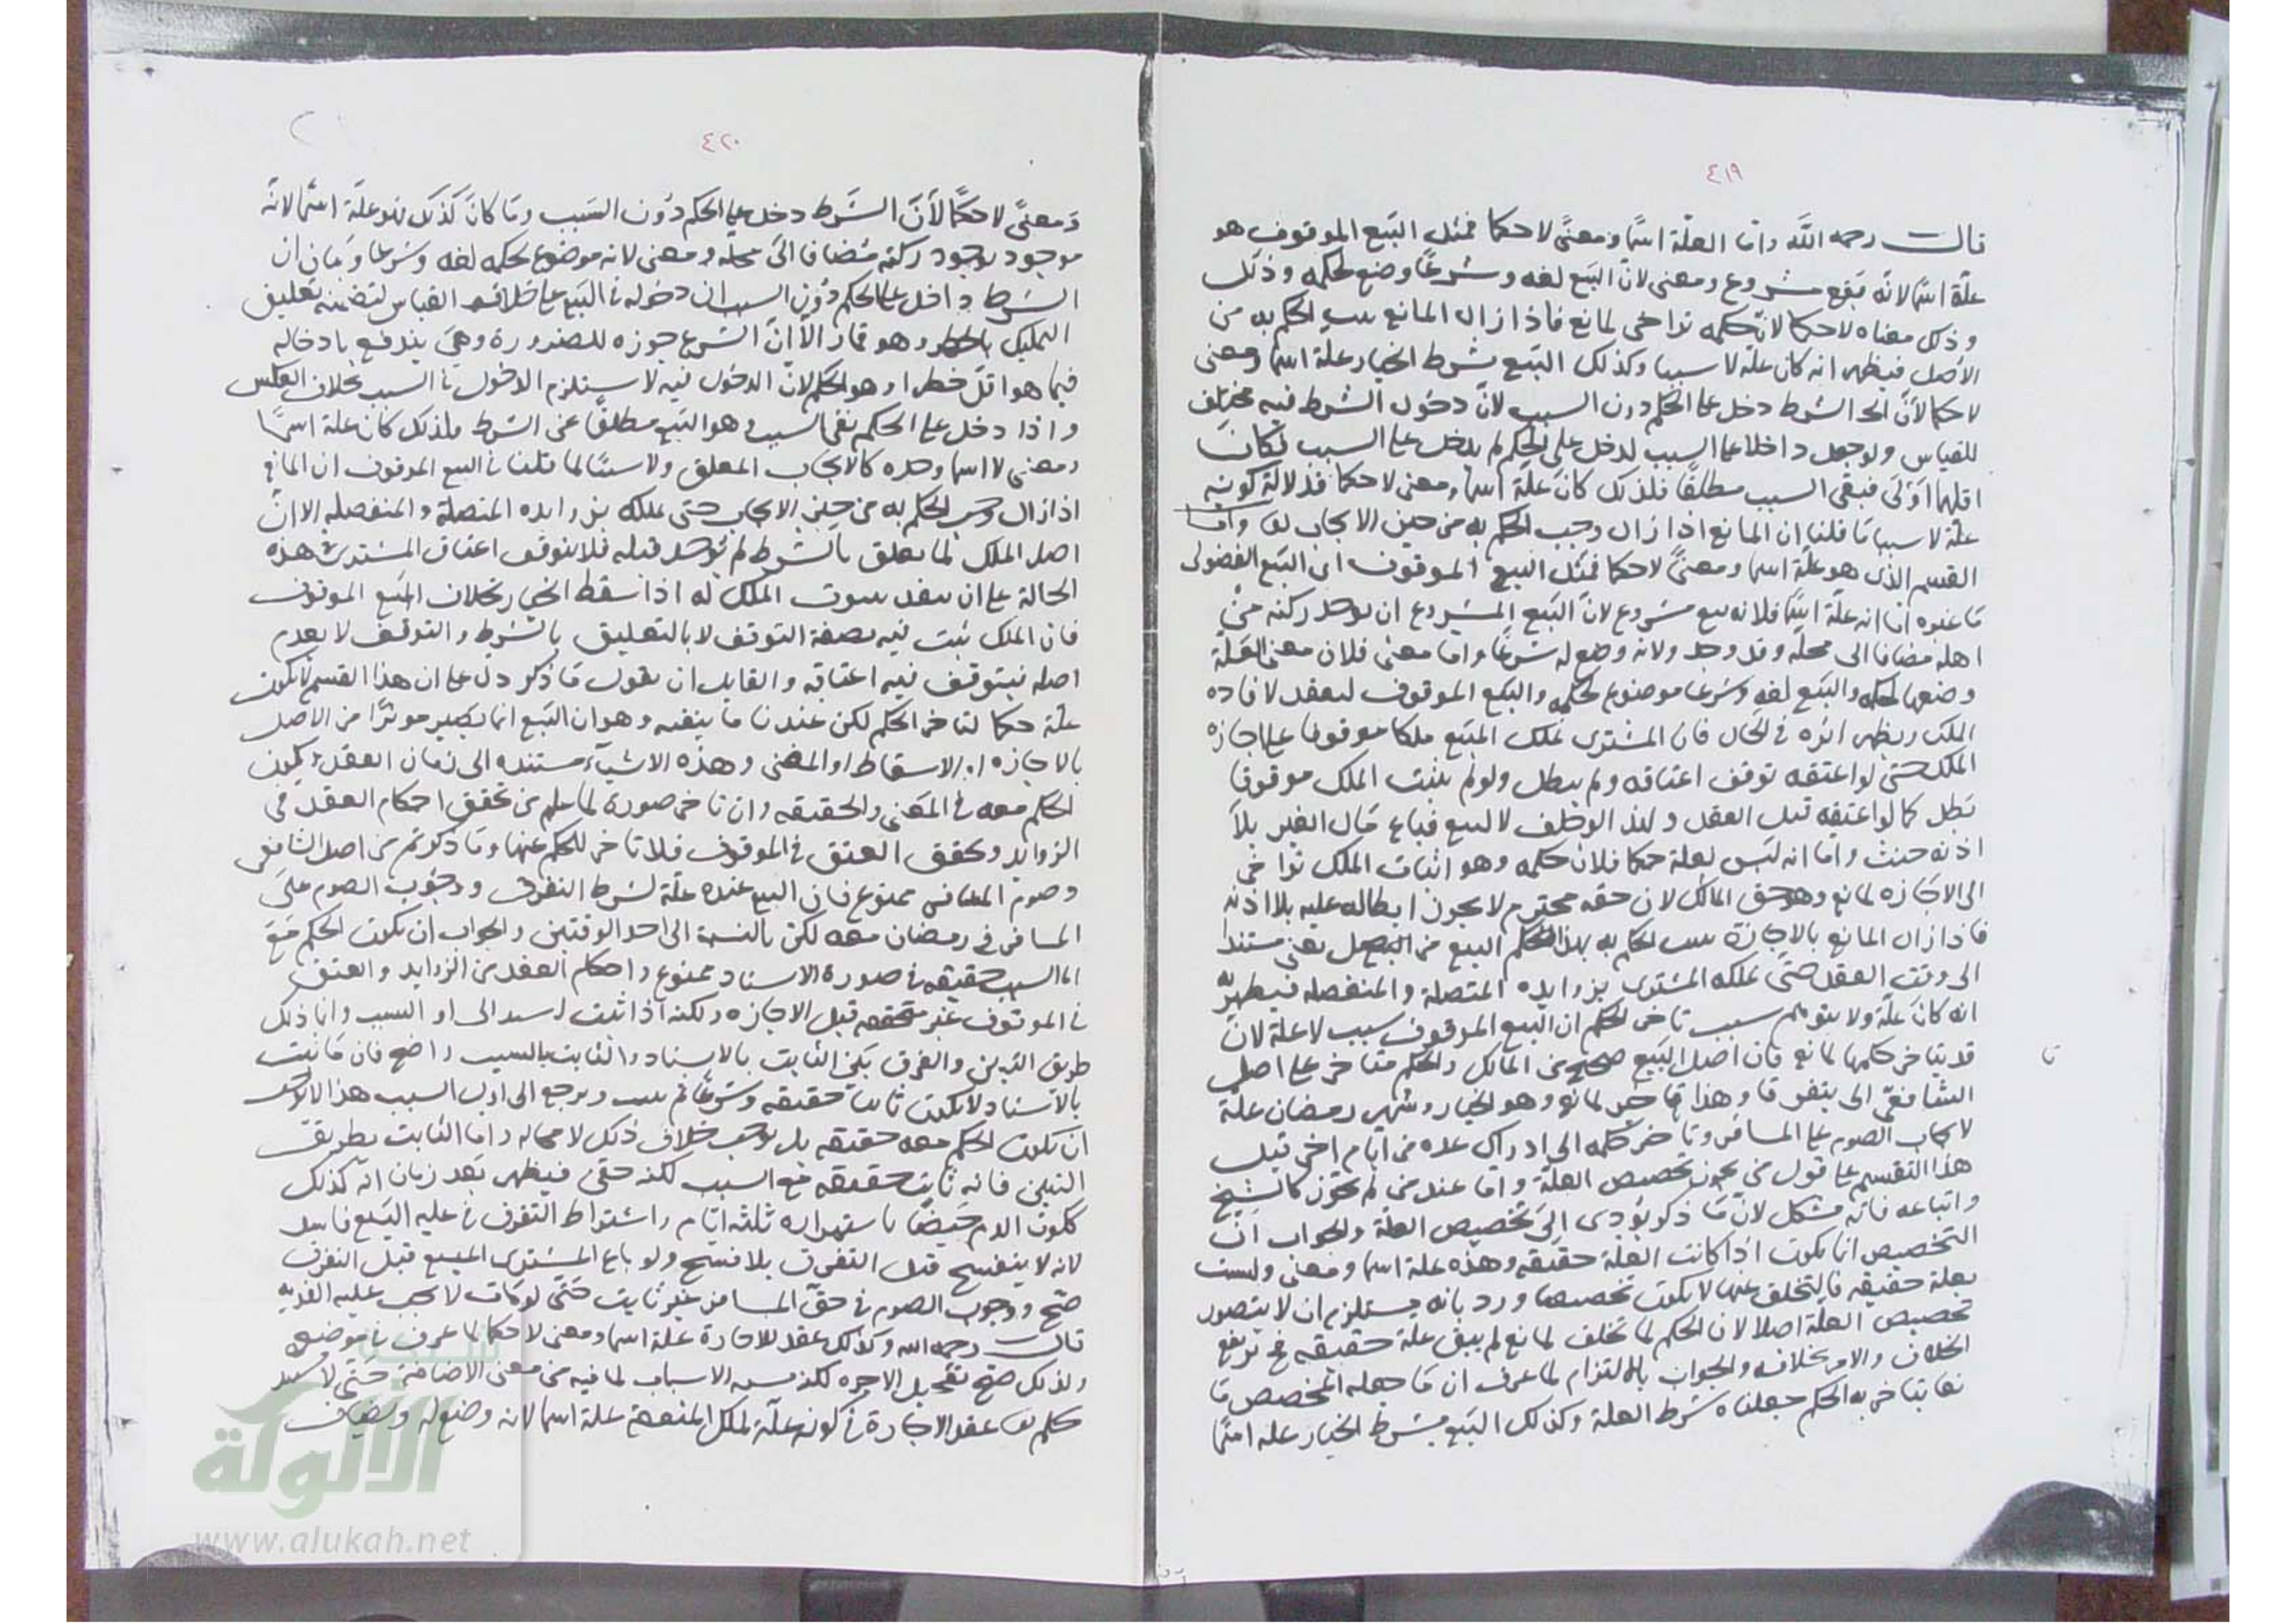 ٤١٩
قال رحمه الله واما العلة اسمًا ومعنًى لا حكما فمثل البيع الموقوف هو
علة اسمًا لانه بيع مشروع ومعنى لان البيع لغه وشرعًا وضع لحكمه وذلك
وذلك معناه لا حكما لان حكمه تراخى لمانع فاذا زال المانع ثبت الحكم به من
الاصل فيظهر انه كان علة لا سببا وكذلك البيع بشرط الخيار علة اسما ومعنى
لا حكما لان الشرط دخل على الحكم دون السبب لان دخول الشرط فيه مخالف
للقياس ولو جعل داخلا على السبب لدخل على الحكم لم يدخل على السبب لكان
اقلهما اولى فبقى السبب مطلقًا فلذلك كان علة اسما ومعنى لا حكما فدلالة كونه
علة لا سببا ما قلنا ان المانع اذا زال وجب الحكم به من حين الايجاب واما
القسم الذى هو علة اسما ومعنًى لا حكما فمثل البيع الموقوف اى البيع الفضولى
ما عنوه اما انه علة اسمًا فلانه بيع مشروع لان البيع المشروع ان يوجد ركنه من
اهله مضافا الى محله وقد وجد ولانه وضع له شرعًا واما معنى فلان معنى العلة
وضعها لحكم والبيع لغه وشرعا موضوع لحكمه والبيع الموقوف لينعقد لافاده
الملك ويظهر اثره فى الحال فان المشترى يملك المبيع ملكا موقوفا على اجازه
الملك حتى لو اعتقه توقف اعتاقه ولم يبطل ولو لم يثبت الملك موقوفا
بطل كما لو اعتقه قبل العقد ولهذا لو حلف لا يبيع فباع مال الغير بلا
اذنه حنث واما انه ليس بعلة حكما فلان حكمه وهو اثبات الملك تراخى
الى الاجازه لمانع وهو حق المالك لان حقه محترم لا يجوز ابطاله عليه بلا اذنه
فاذا زال المانع بالاجازة ثبت الحكم به بهذا الحكم البيع من الاصل يعنى مستندا
الى وقت العقد حتى يملكه المشترى بزوايده المتصلة والمنفصله فيظهر به
انه كان علة ولا يتوهم بسبب تاخر الحكم ان البيع الموقوف سبب لا علة لان
قد يتاخر حكمها لمانع فان اصل البيع صحيح من المالك والحكم متاخر على اصل
الشافعى الى يتفرقا وهذا تاخر لمانع وهو الخيار وشهر رمضان علة
لايجاب الصوم على المسافر وتاخر حكمه الى ادراك عده من ايام اخر قيل
هذا التقسيم على قول من يجوز تخصيص العلة واما عند من لم يجوز كالشيخ
واتباعه فانه مشكل لان ما ذكر يؤدى الى تخصيص العلة والجواب ان
التخصيص انما يكون اذا كانت العلة حقيقه وهذه علة اسما ومعنى وليست
بعلة حقيقه فالتخلف عنها لا يكون تخصيصا ورد بانه يستلزم ان لا يتصور
تخصيص العلة اصلا لان الحكم لما تخلف لمانع لم يبق علة حقيقه فيرتفع
الخلاف والامر بخلافه والجواب بالالتزام لما عرف ان ما جعله المخصص مانعا
يتاخر به الحكم جعلناه شرط العلة وكذلك البيع بشرط الخيار علة اسمًا
٤٢٠
ومعنًى لا حكمًا لان الشرط دخل على الحكم دون السبب وما كان كذلك فهو علة اسمًا لانه
موجود بوجود ركنه مضافا الى محله ومعنى لانه موضوع لحكمه لغه وشرعا وبيان ان
الشرط داخل على الحكم دون السبب ان دخوله فى البيع على خلاف القياس لتضمنه تعليق
التمليك بالخطر وهو قمار الا ان الشرع جوزه للضرورة وهى يندفع بادخاله
فيما هو اقل خطرا وهو الحكم لان الدخول فيه لا يستلزم الدخول فى السبب بخلاف العكس
واذا دخل على الحكم بقى السبب وهو البيع مطلقًا عن الشرط فلذلك كان علة اسمًا
ومعنى لا اسما وحده كالايجاب المعلق ولا سببًا لما قلنا فى البيع الموقوف ان المانع
اذا زال وجب الحكم به من حين الايجاب حتى يملكه بزوايده المتصلة والمنفصله الا ان
اصل الملك لما تعلق بالشرط لم يوجد قبله فلا يتوقف اعتاق المشترى فى هذه
الحالة على ان ينفذ بثبوت الملك له اذا سقط الخيار بخلاف البيع الموقوف
فان الملك يثبت فيه بصفة التوقف لا بالتعليق بالشرط والتوقف لا يعدم
اصله فيتوقف فيه اعتاقه والقايل ان يقول ما ذكر دل على ان هذا القسم لا يكون
علة حكما لتاخر الحكم لكن عندنا ما ينفيه وهو ان البيع انما يصير موثرًا من الاصل
بالاجازه او الاسقاط او المضى وهذه الاشياء مستنده الى زمان العقد فيكون
الحكم معه فى المعنى والحقيقه وان تاخر صورة لما علم من تحقق احكام العقد فى
الزوايد وتحقق العتق فى الموقوف فلا تاخر للحكم عنها وما ذكرتم من اصل الشافعى
وصوم المسافر ممنوع فان البيع عنده علة لشرط التفرق ووجوب الصوم على
المسافر فى رمضان معه لكن بالنسبة الى احد الوقتين والجواب ان يكون الحكم مع
السبب حقيقه فى صورة الاسناد ممنوع واحكام العقد من الزوايد والعتق
فى الموقوف غير متحققه قبل الاجازه ولكنه اذا ثبت استند الى اول السبب وانما ذلك
طريق التبين والفرق بين الثابت بالاسناد والثابت بالسبب واضح فان ما يثبت
بالاسناد لا يكون ثابتا حقيقه وشرعًا ثم يثبت ويرجع الى اول السبب هذا لا يوجب
ان يكون الحكم معه حقيقه بل يوجب خلاف ذلك لا محاله واما الثابت بطريق
التبين فانه ثابت حقيقه مع السبب لكنه خفى فيظهر بعد زمان انه كذلك
ككون الدم حيضًا باستمراره ثلثة ايام واشتراط التفرق فى علية البيع فاسد
لانه لا ينفسخ قبل التفرق بلا فسخ ولو باع المشترى المبيع قبل التفرق
صح ووجوب الصوم فى حق المسافر غير ثابت حتى لو مات لا يجب عليه الفديه
قال رحمه الله وكذلك عقد الاجارة علة اسما ومعنى لا حكما لما عرف فى موضعه
ولذلك صح تعجيل الاجره لكنه يشبه الاسباب لما فيه من معنى الاضافة حتى لا يستند
حكمه عقد الاجارة فى كونه علة لملك المنفعة علة اسما لانه وضع له ويضاف
الألوكة
www.alukah.net